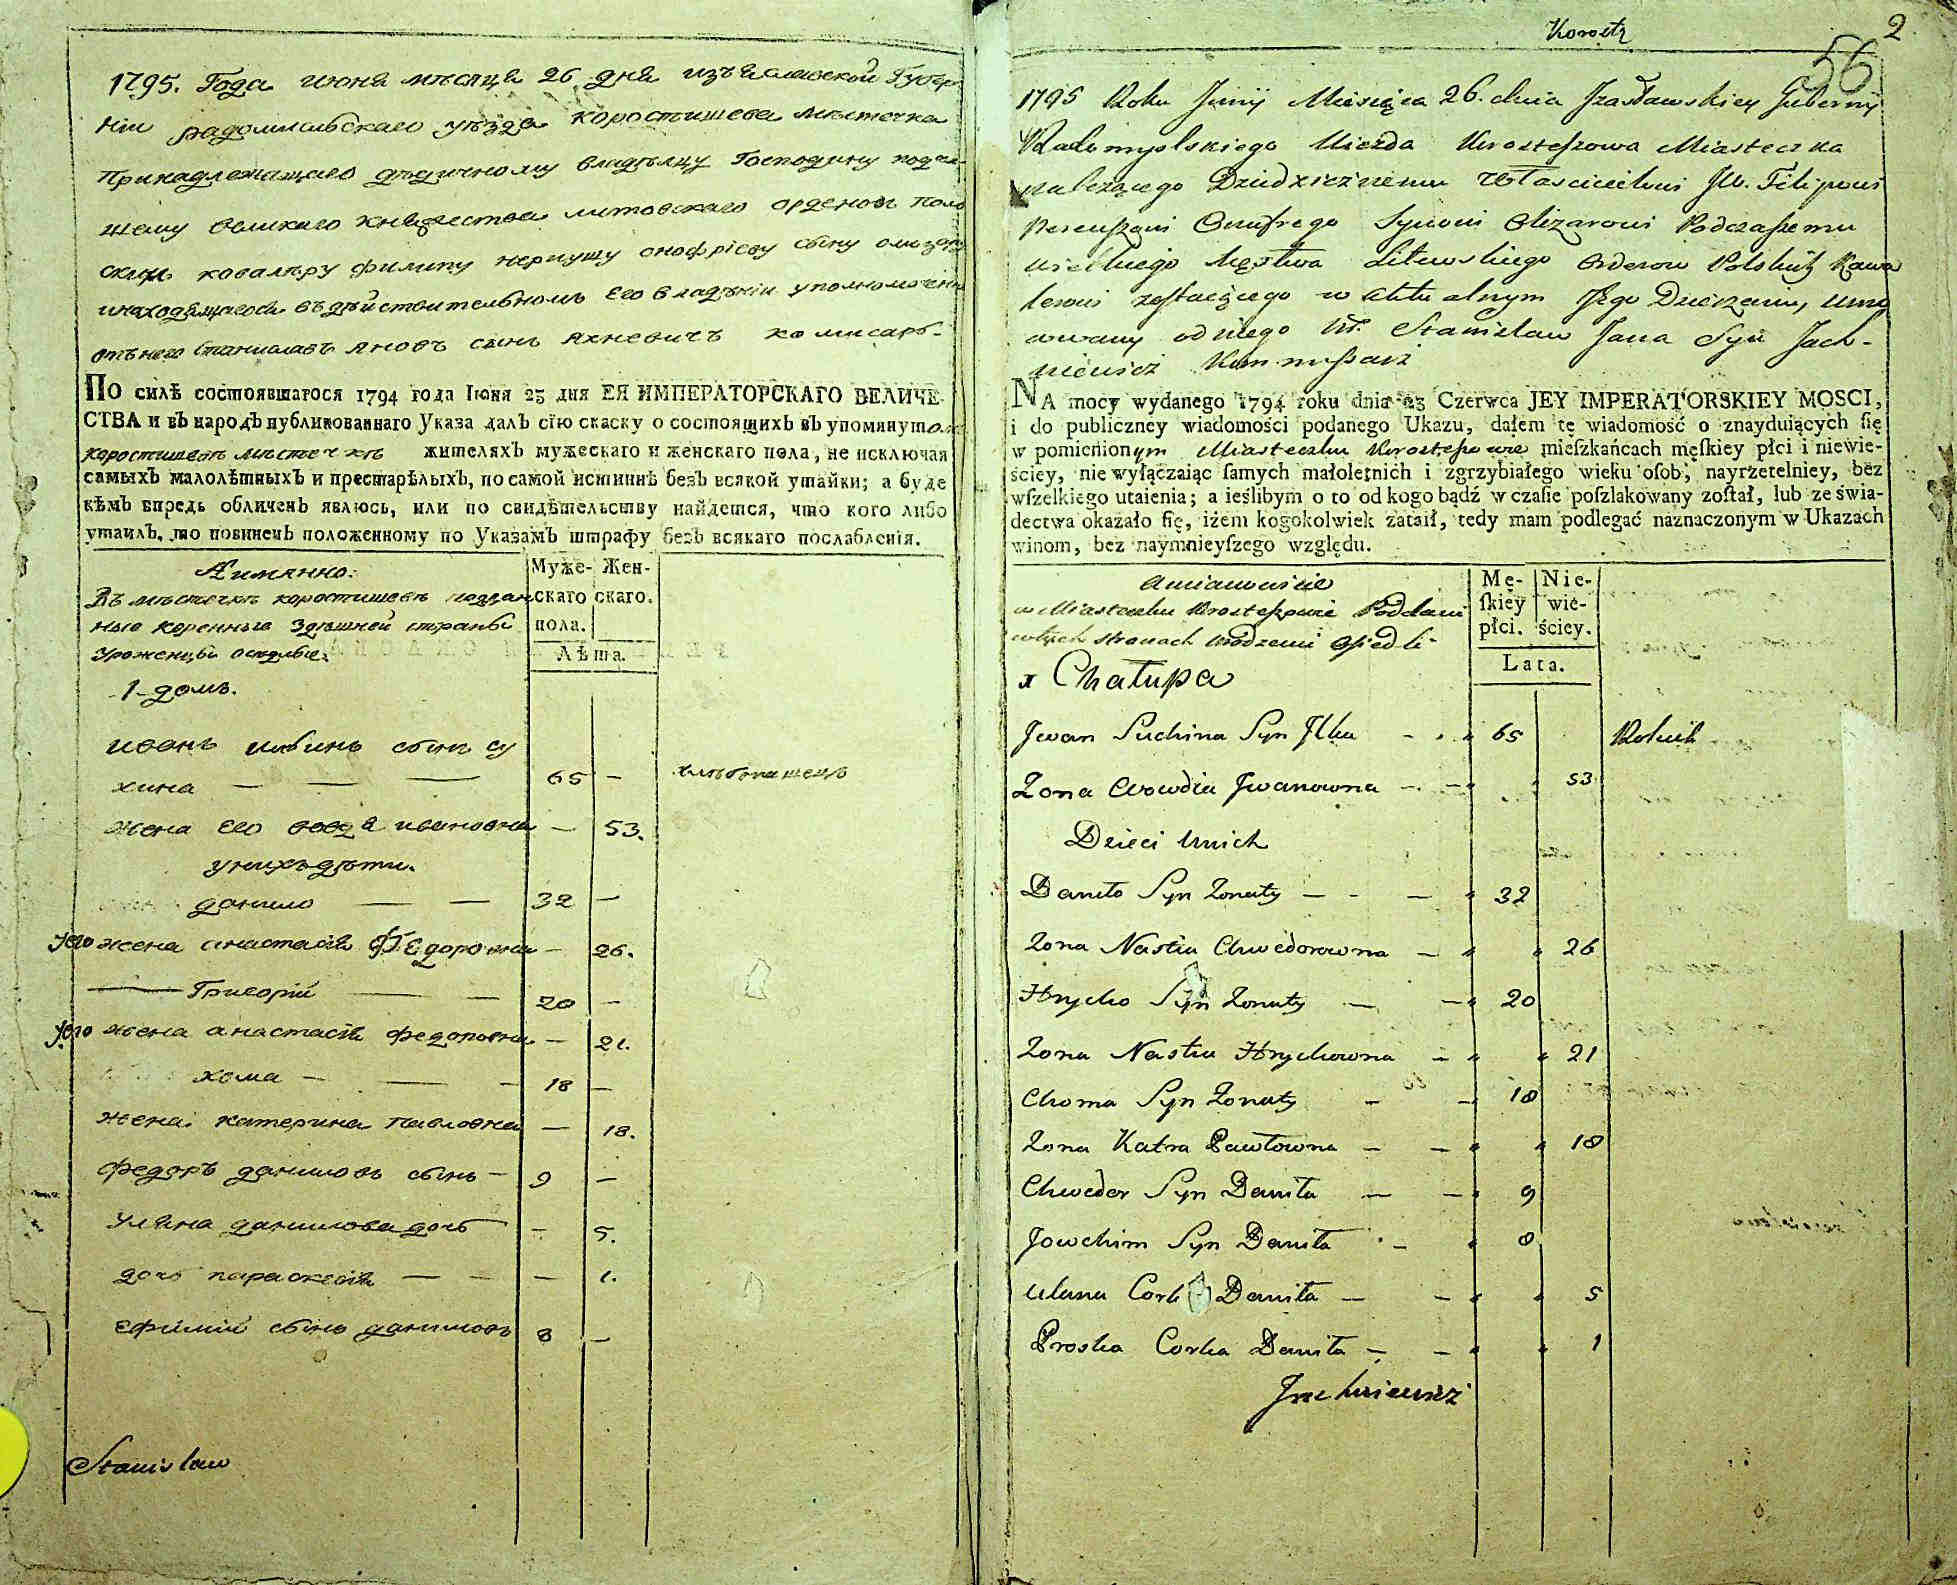 1795. Года июня мѣсяца 26 дня изъяславской Губер
ніи радомысльскаго уѣзда коростишева мѣстечка
принадлежащаго дѣдичному владѣлцу Господину подча
шему великаго княжества литовскаго орденовъ поль
скихъ кавалѣру филипу нерцушу онофріеву сыну олизару
инаходящагося въдѣйствительномъ Его владѣніи уполномочены
отънего Станиславъ яновъ сынъ яхневичъ комисаръ-
ПО силѣ состоявшагося 1794 года Іюня 23 дня ЕЯ ИМПЕРАТОРСКАГО ВЕЛИЧЕ-
СТВА и въ народѣ публикованнаго Указа далъ сію скаску о состоящихъ въ упомянутомъ
коростишевѣ мѣстечкѣ жителяхъ мужескаго и женскаго пола, не исключая
самыхъ малолѣтныхъ и престарѣлыхъ, по самой истиннѣ безъ всякой утайки; а буде
кѣмъ впредь обличенъ явлюсь, или по свидѣтельству найдется, что кого либо
утаилъ, то повиненъ положенному по Указамъ штрафу безъ всякаго послабленія.
Аимянно:
Въ мѣстечкѣ коростишевѣ поддан
ные коренные здѣшней страны
уроженцы оседлые:
Муже-
скаго
пола.
Жен-
скаго.
Лѣта.
1-домъ.
иванъ ильинъ сынъ су
хина — — — 65 — хлѣбопашецъ
жена его овдя ивановна — 53.
унихъдѣти.
данило — — 32 —
Уего жена анастасія Федоровна — 26.
— Григорій — — 20 —
Уего жена анастасія федоровна — 21.
хома — — — 18 —
жена катерина павловна — 18.
федоръ даниловъ сынъ — 9 —
уляна данилова дочь — 5.
дочь параскевія — — — 1.
ефимій сынъ даниловъ 8 —
Stanisław
Korostz
2
56
1795 Roku Junij Miesiąca 26. dnia Izasławskiey Gubernij
Radomyslskiego Uiezda Krosteszowa Miasteczka
należącego Dziedzicznemu Własciicielowi JW. Filipowi
Nereuszowi Onufrego Synowi Olizarowi Podczaszemu
Wielkiego Xięstwa Litewskiego Orderow Polskich Kawa
lerowi zostaiącego w aktualnym Jego Dzierzeniu, umo
cowany od niego W. Stanisław Jana Syn Jach-
niewicz Kommissarz
NA mocy wydanego 1794 roku dnia 23 Czerwca JEY IMPERATORSKIEY MOSCI,
i do publiczney wiadomości podanego Ukazu, dałem tę wiadomość o znayduiących się
w pomienionym Miasteczku Krosteszowie mieſzkańcach męſkiey płci i niewie-
ściey, nie wyłączaiąc ſamych małoletnich i zgrzybiałego wieku oſob, nayrzetelniey, bez
wſzelkiego utaienia; a ieślibym o to od kogo bądź w czaſie poſzlakowany został, lub ze świa-
dectwa okazało ſię, iżem kogokolwiek zataił, tedy mam podlegać naznaczonym w Ukazach
winom, bez naymnieyſzego względu.
Amianowicie
w Miasteczku Krosteszowie Poddani
wtych stronach urodzeni Osiedli-
Mę-
ſkiey
płci.
Nie-
wie-
ściey.
Lata.
1 Chałupa
Jwan Suchina Syn Jlka - . „ 65 Rolnik
Zona Owdia Jwanowna - - „ „ 53
Dzieci Unich
Daniło Syn Zonaty — - — „ 32
Zona Nastia Chwedorowna — „ „ 26
Hrycko Syn Zonaty — — „ 20
Zona Nastia Hrychowna — „ „ 21
Choma Syn Zonaty — — 18
Zona Katra Pawłowna — — „ „ 18
Chwedor Syn Daniła — — „ 9
Jowchim Syn Daniła - — „ 8
Ulana Corka Daniła — — „ „ 5
Proska Corka Daniła — — „ „ 1
Jachniewicz